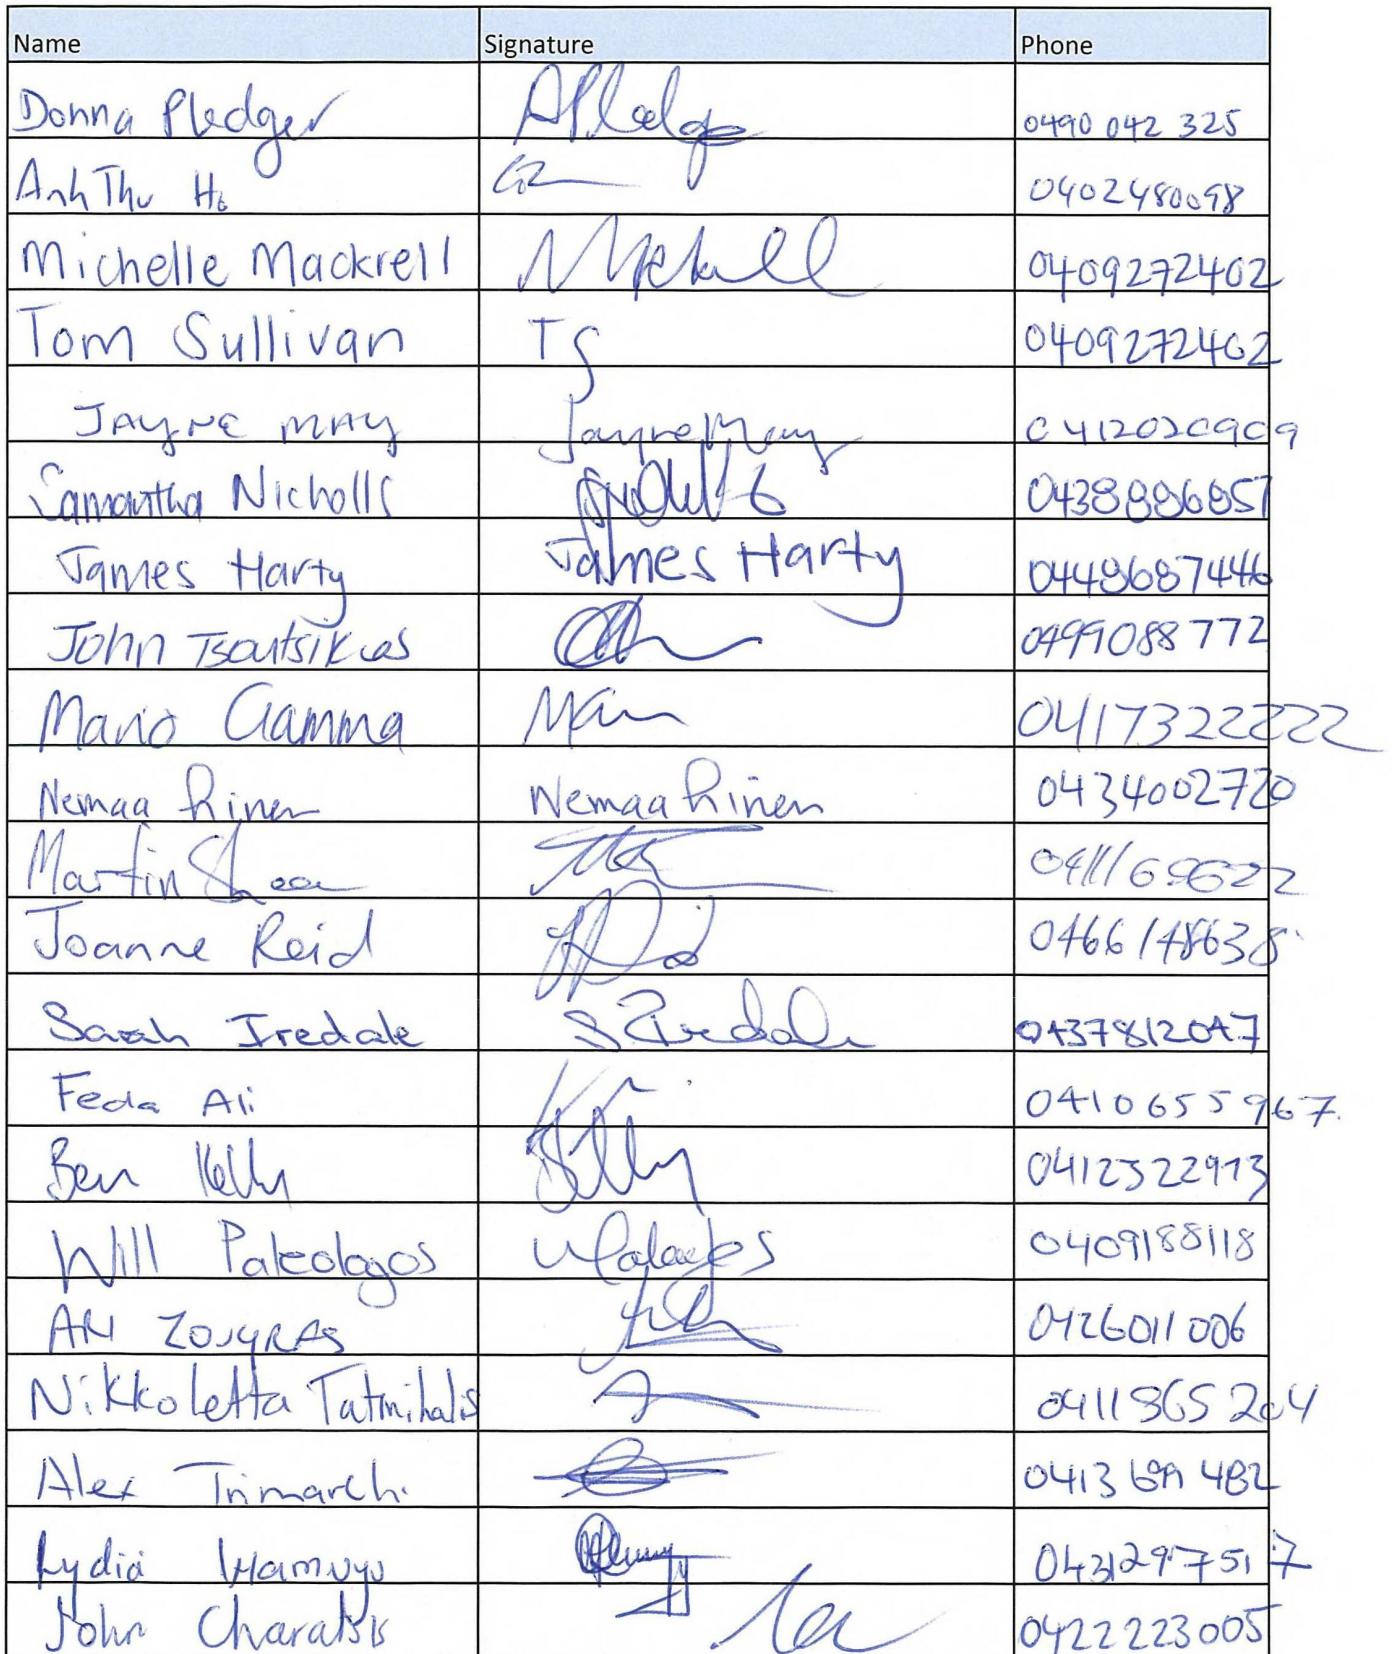 Name Signature Phone
Donna Pledger 0490 042 325
Anh Thu Ho 0402480098
Michelle Mackrell 0409272402
Tom Sullivan TS 0409272402
JAYNE MAY Jayne May 0412020909
Samantha Nicholls 0438886857
James Harty James Harty 0448687446
John Tsoutsikos 0499088772
Mario Giamma 0417322222
Nemaa Rinen Nemaa Rinen 0434002720
Martin
Joanne Reid 0466148638
Sarah Iredale S Iredale 0437812047
Feda Ali 0410655967
Ben Kelly 0412322913
Will Paleologos 0409188118
ARI ZOUGRAS 0426011006
Nikkoletta Tatmihalis 0411865204
Alex Trimarchi 0413 482
Lydia 0431297517
John Charalsis 0422223005